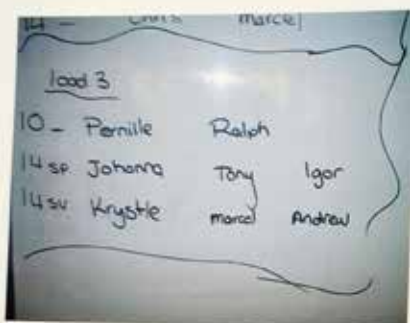 14 - Chris marcel
load 3
10 - Pernille Ralph
14 SP Johanna Tony Igor
14 SV Krystle marcel Andrew